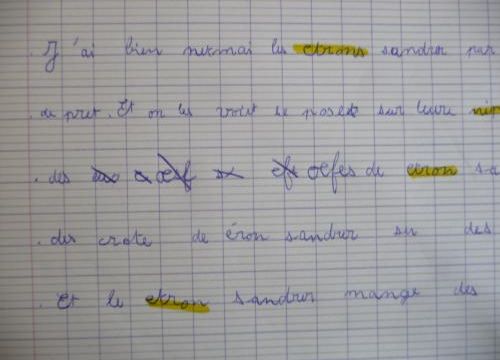 . J'ai bien mermai les etrons sandrer par
. de pret. Et on les voit se posets sur leure nip
. des oefes de etron sa
. des crote de éron sandrer su des
. Et le etron sandrer mange des